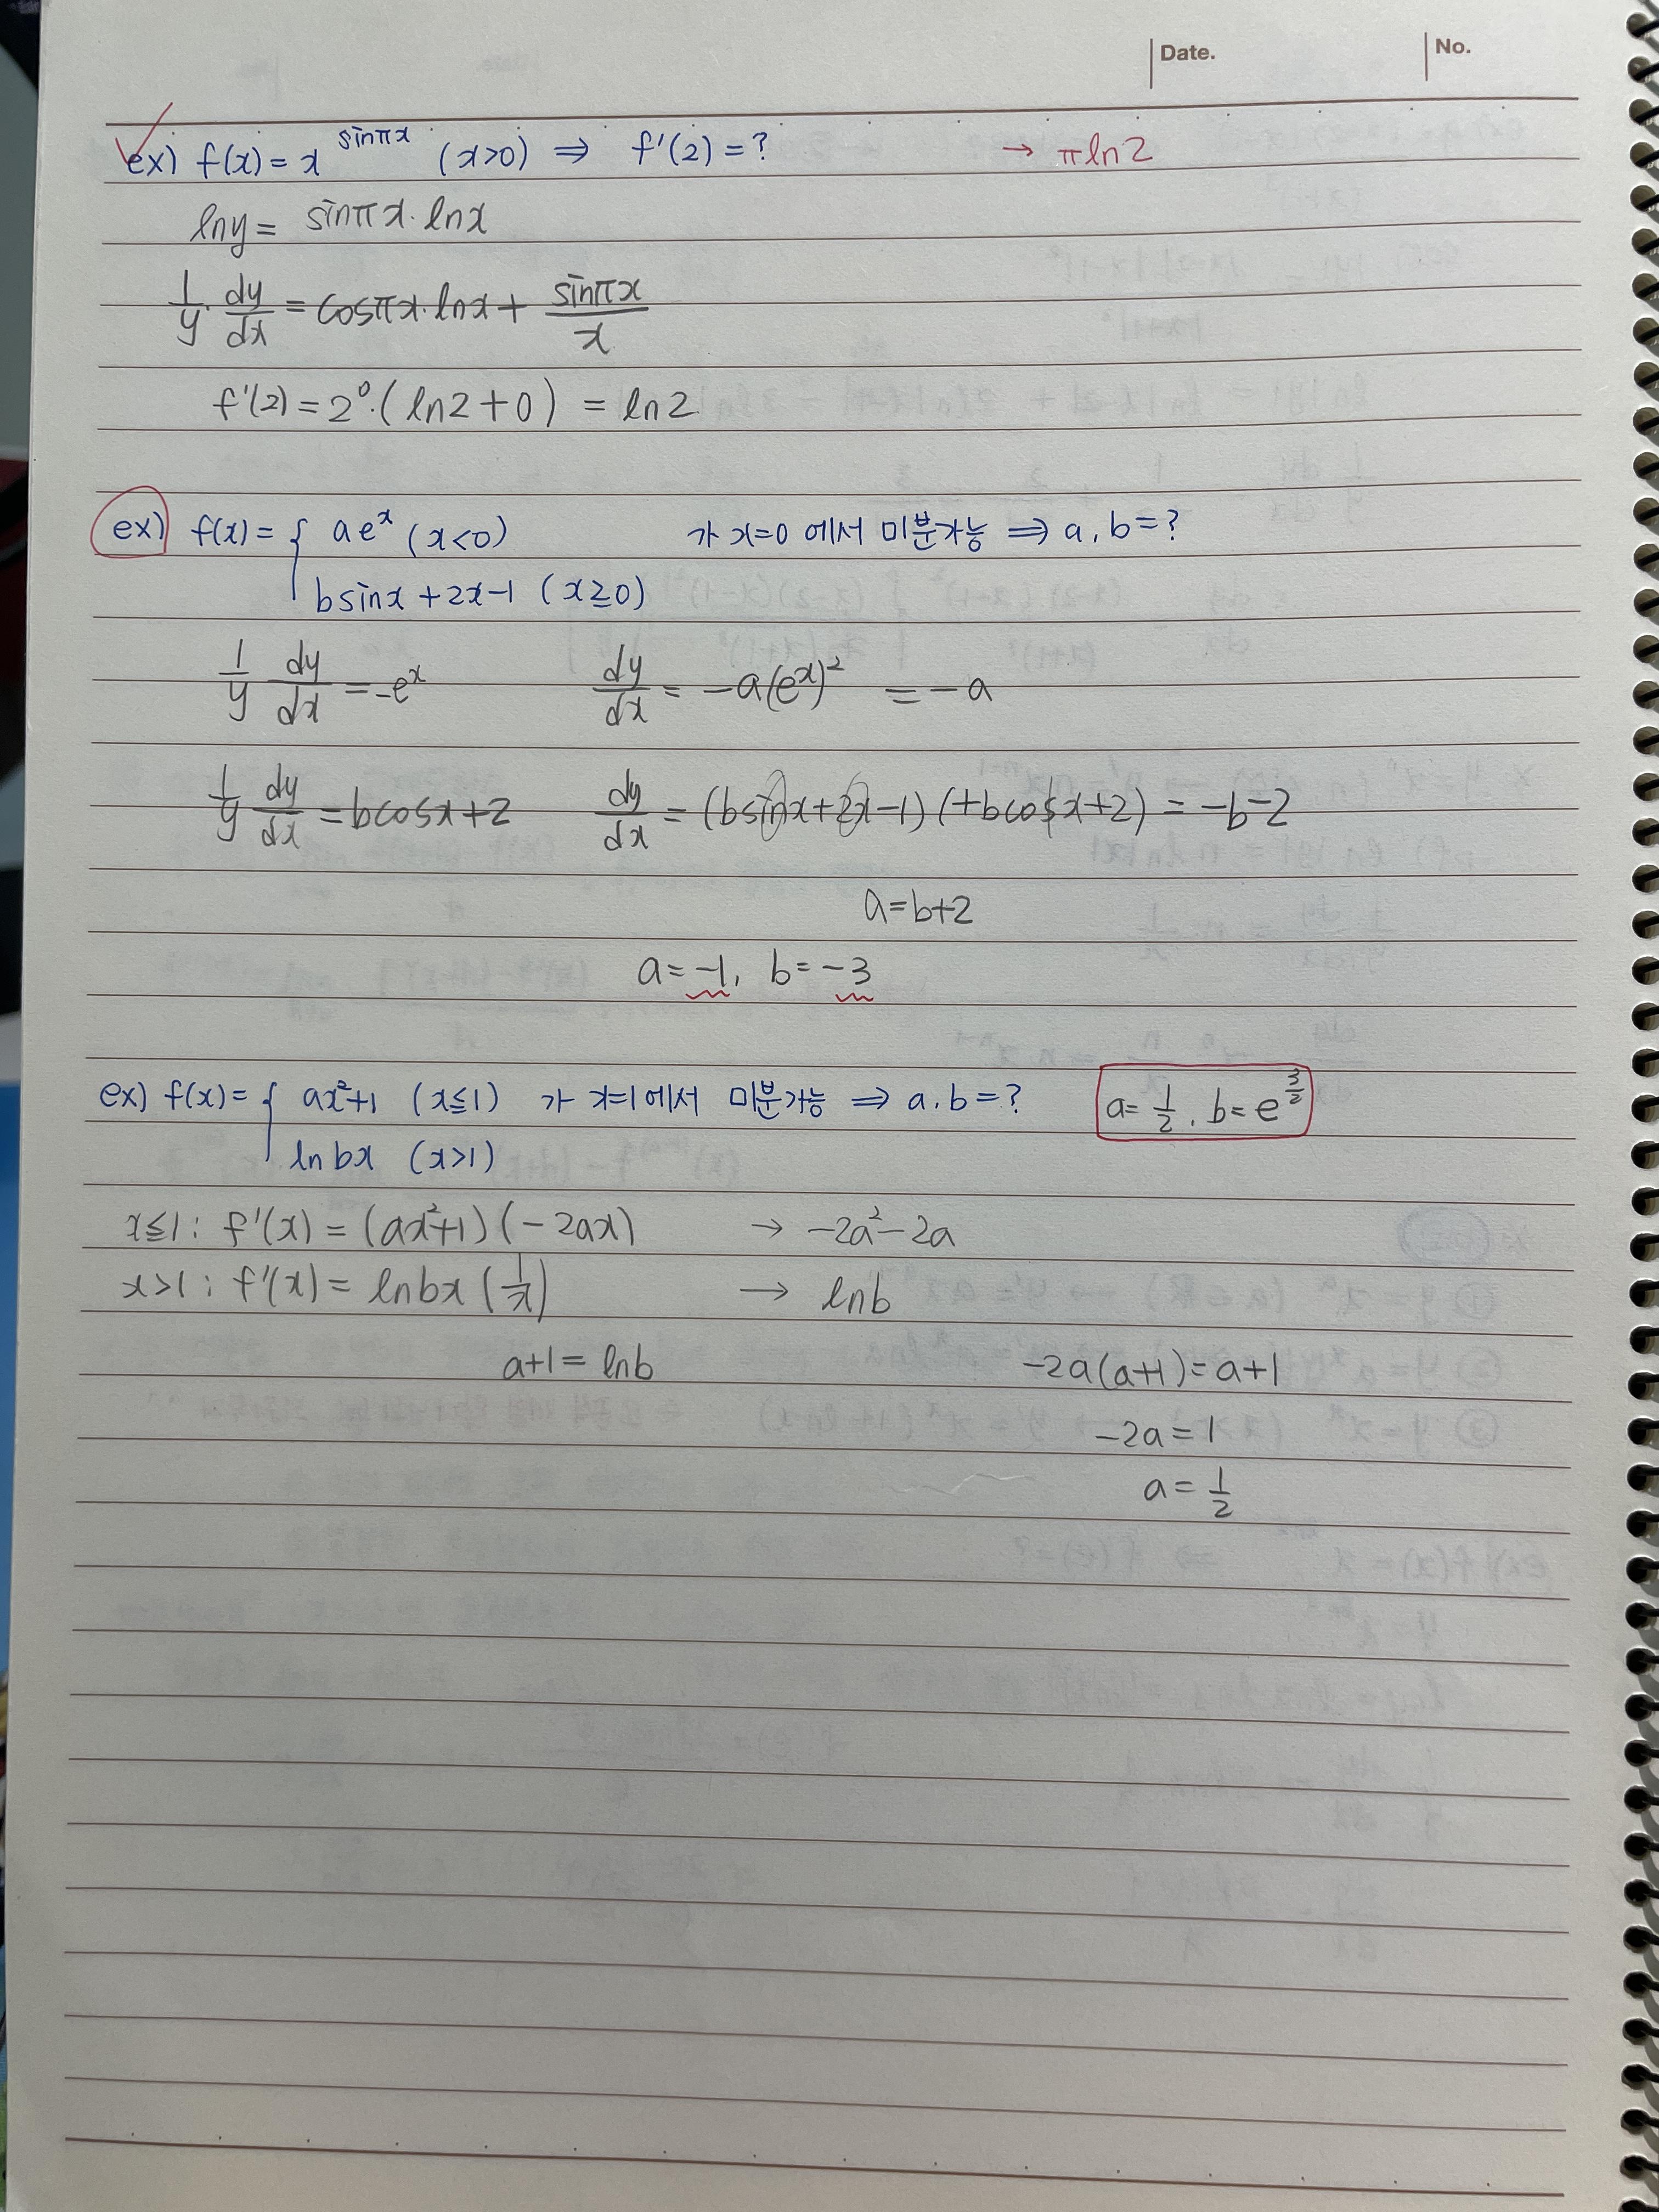 Date. No.
ex) f(x) = x^{sinπx} (x>0) ⇒ f'(2) = ? → πln2
lny = sinπx · lnx
1/y · dy/dx = cosπx · lnx + sinπx/x
f'(2) = 2⁰ · (ln2+0) = ln2
ex) f(x) = { ae^x (x<0) 가 x=0 에서 미분가능 ⇒ a, b = ?
bsinx + 2x-1 (x≥0)
1/y dy/dx = -e^x dy/dx = -a(e^x)² = -a
1/y dy/dx = bcosx+2 dy/dx = (bsinx+2x-1)(+bcosx+2) = -b-2
a=b+2
a=-1, b=-3
ex) f(x) = { ax²+1 (x≦1) 가 x=1에서 미분가능 ⇒ a, b = ? a= 1/2, b= e^{3/2}
lnbx (x>1)
x≦1 : f'(x) = (ax²+1)(-2ax) → -2a²-2a
x>1 : f'(x) = lnbx (1/x) → lnb
a+1 = lnb -2a(a+1) = a+1
-2a = 1
a = 1/2